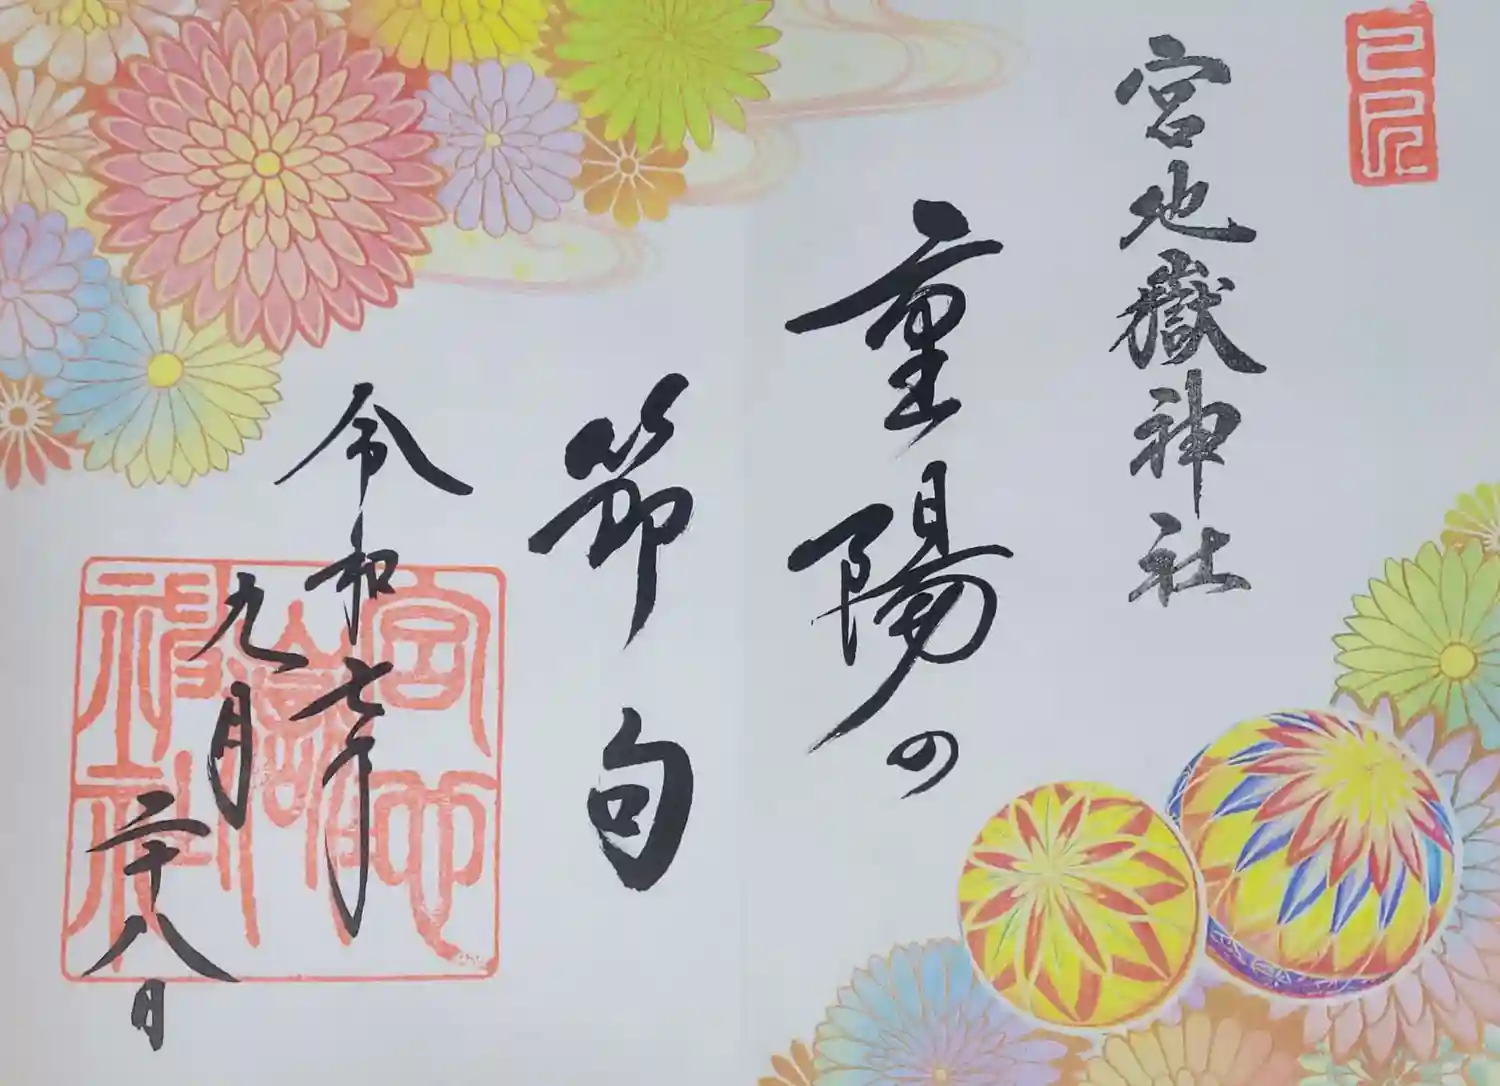 己巳
宮地嶽神社
重陽の
節句
令和七年
九月二十八日
宮地嶽神社